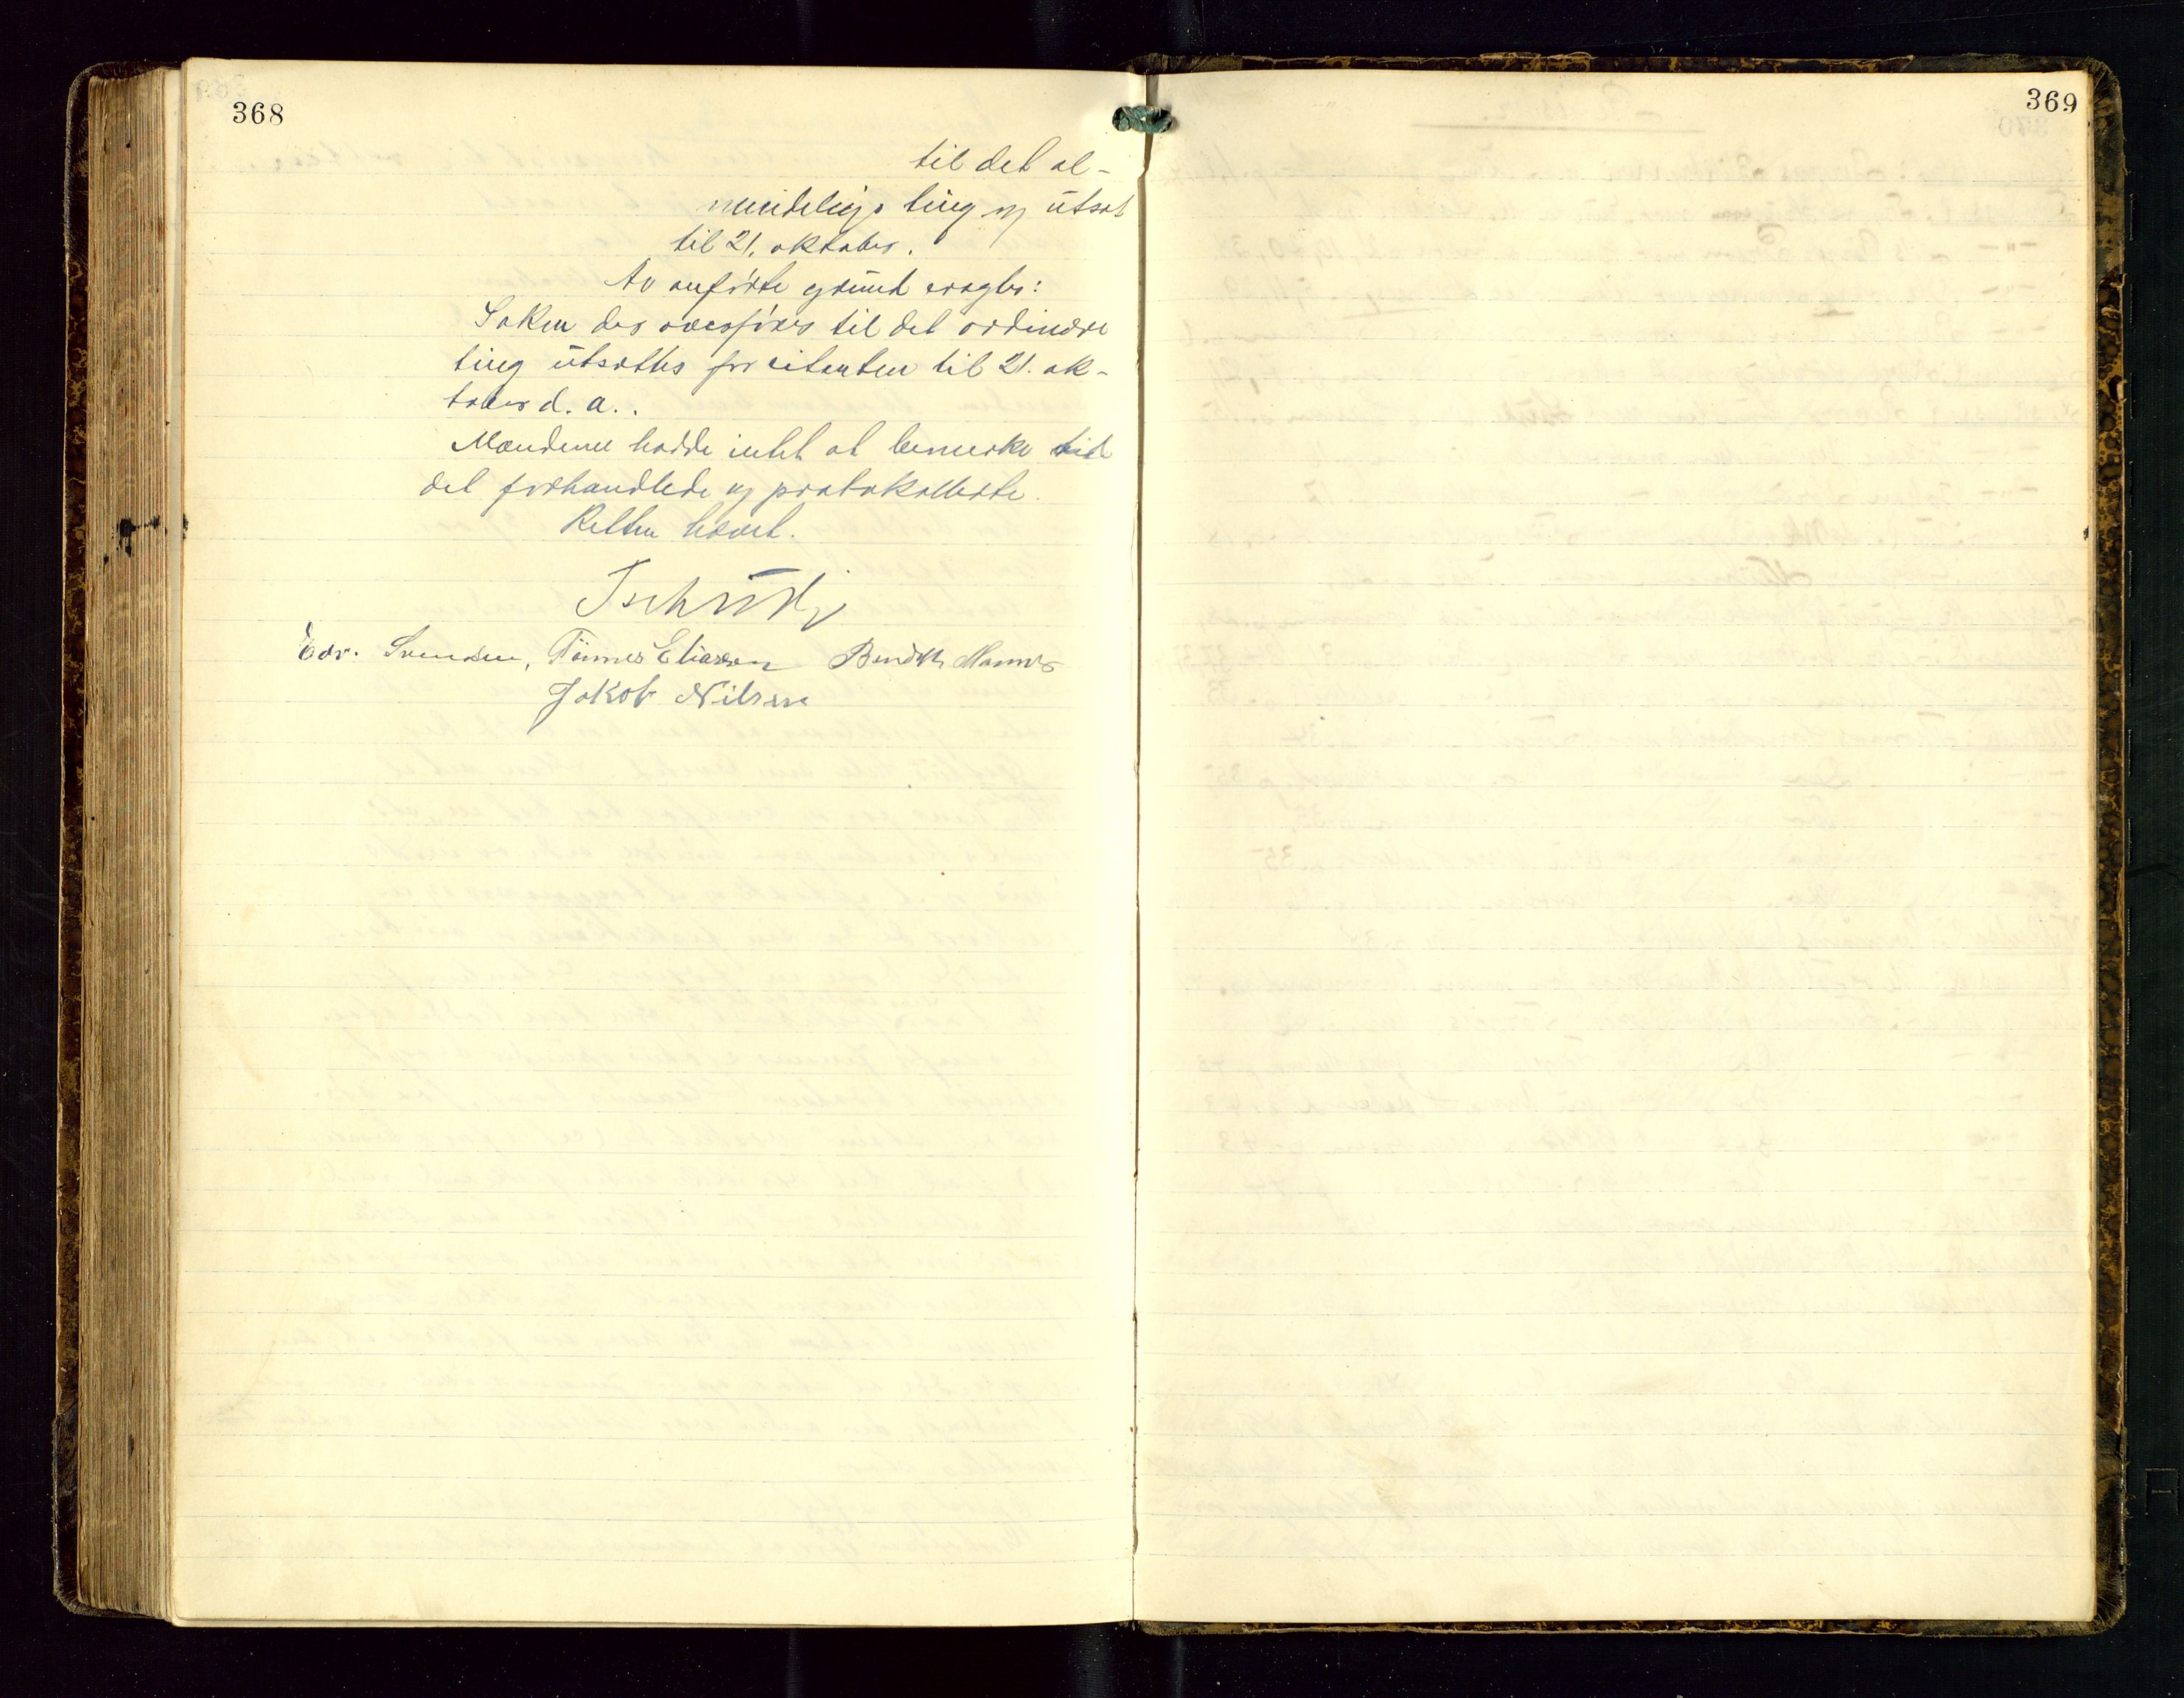 368
til det al-
mindelige ting og utsat
til 21. oktober.
Av anførte grund eragtes:
Saken der overføres til det ordinære
ting utsættes for citanten til 21. ok-
tober d. a..
Mændene hadde intet at bemerke til
det forhandlede og protokollerte.
Retten hævet.
Tschudy
Edv. Svendsen, Tönnes Eliassen Bendik Hannes
Jakob Nilsen
369